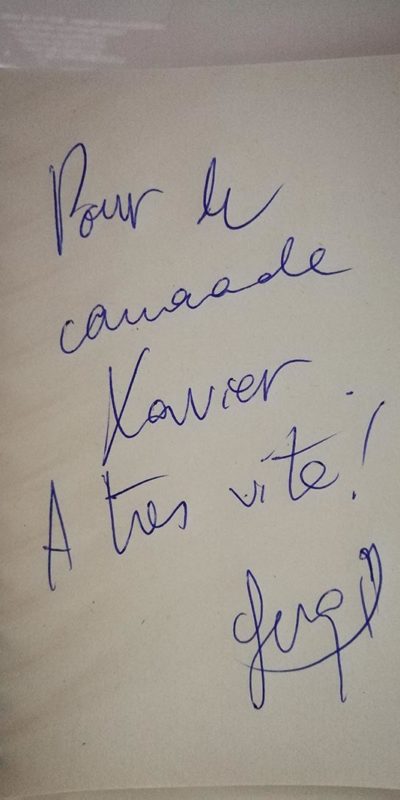 Pour le
camarade
Xavier.
A très vite!